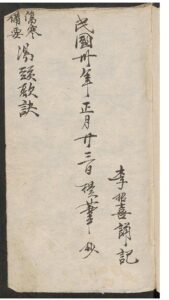 李
喜誦記
民國卅年正月廿三日
抄
傷寒
備要
湯頭歌訣